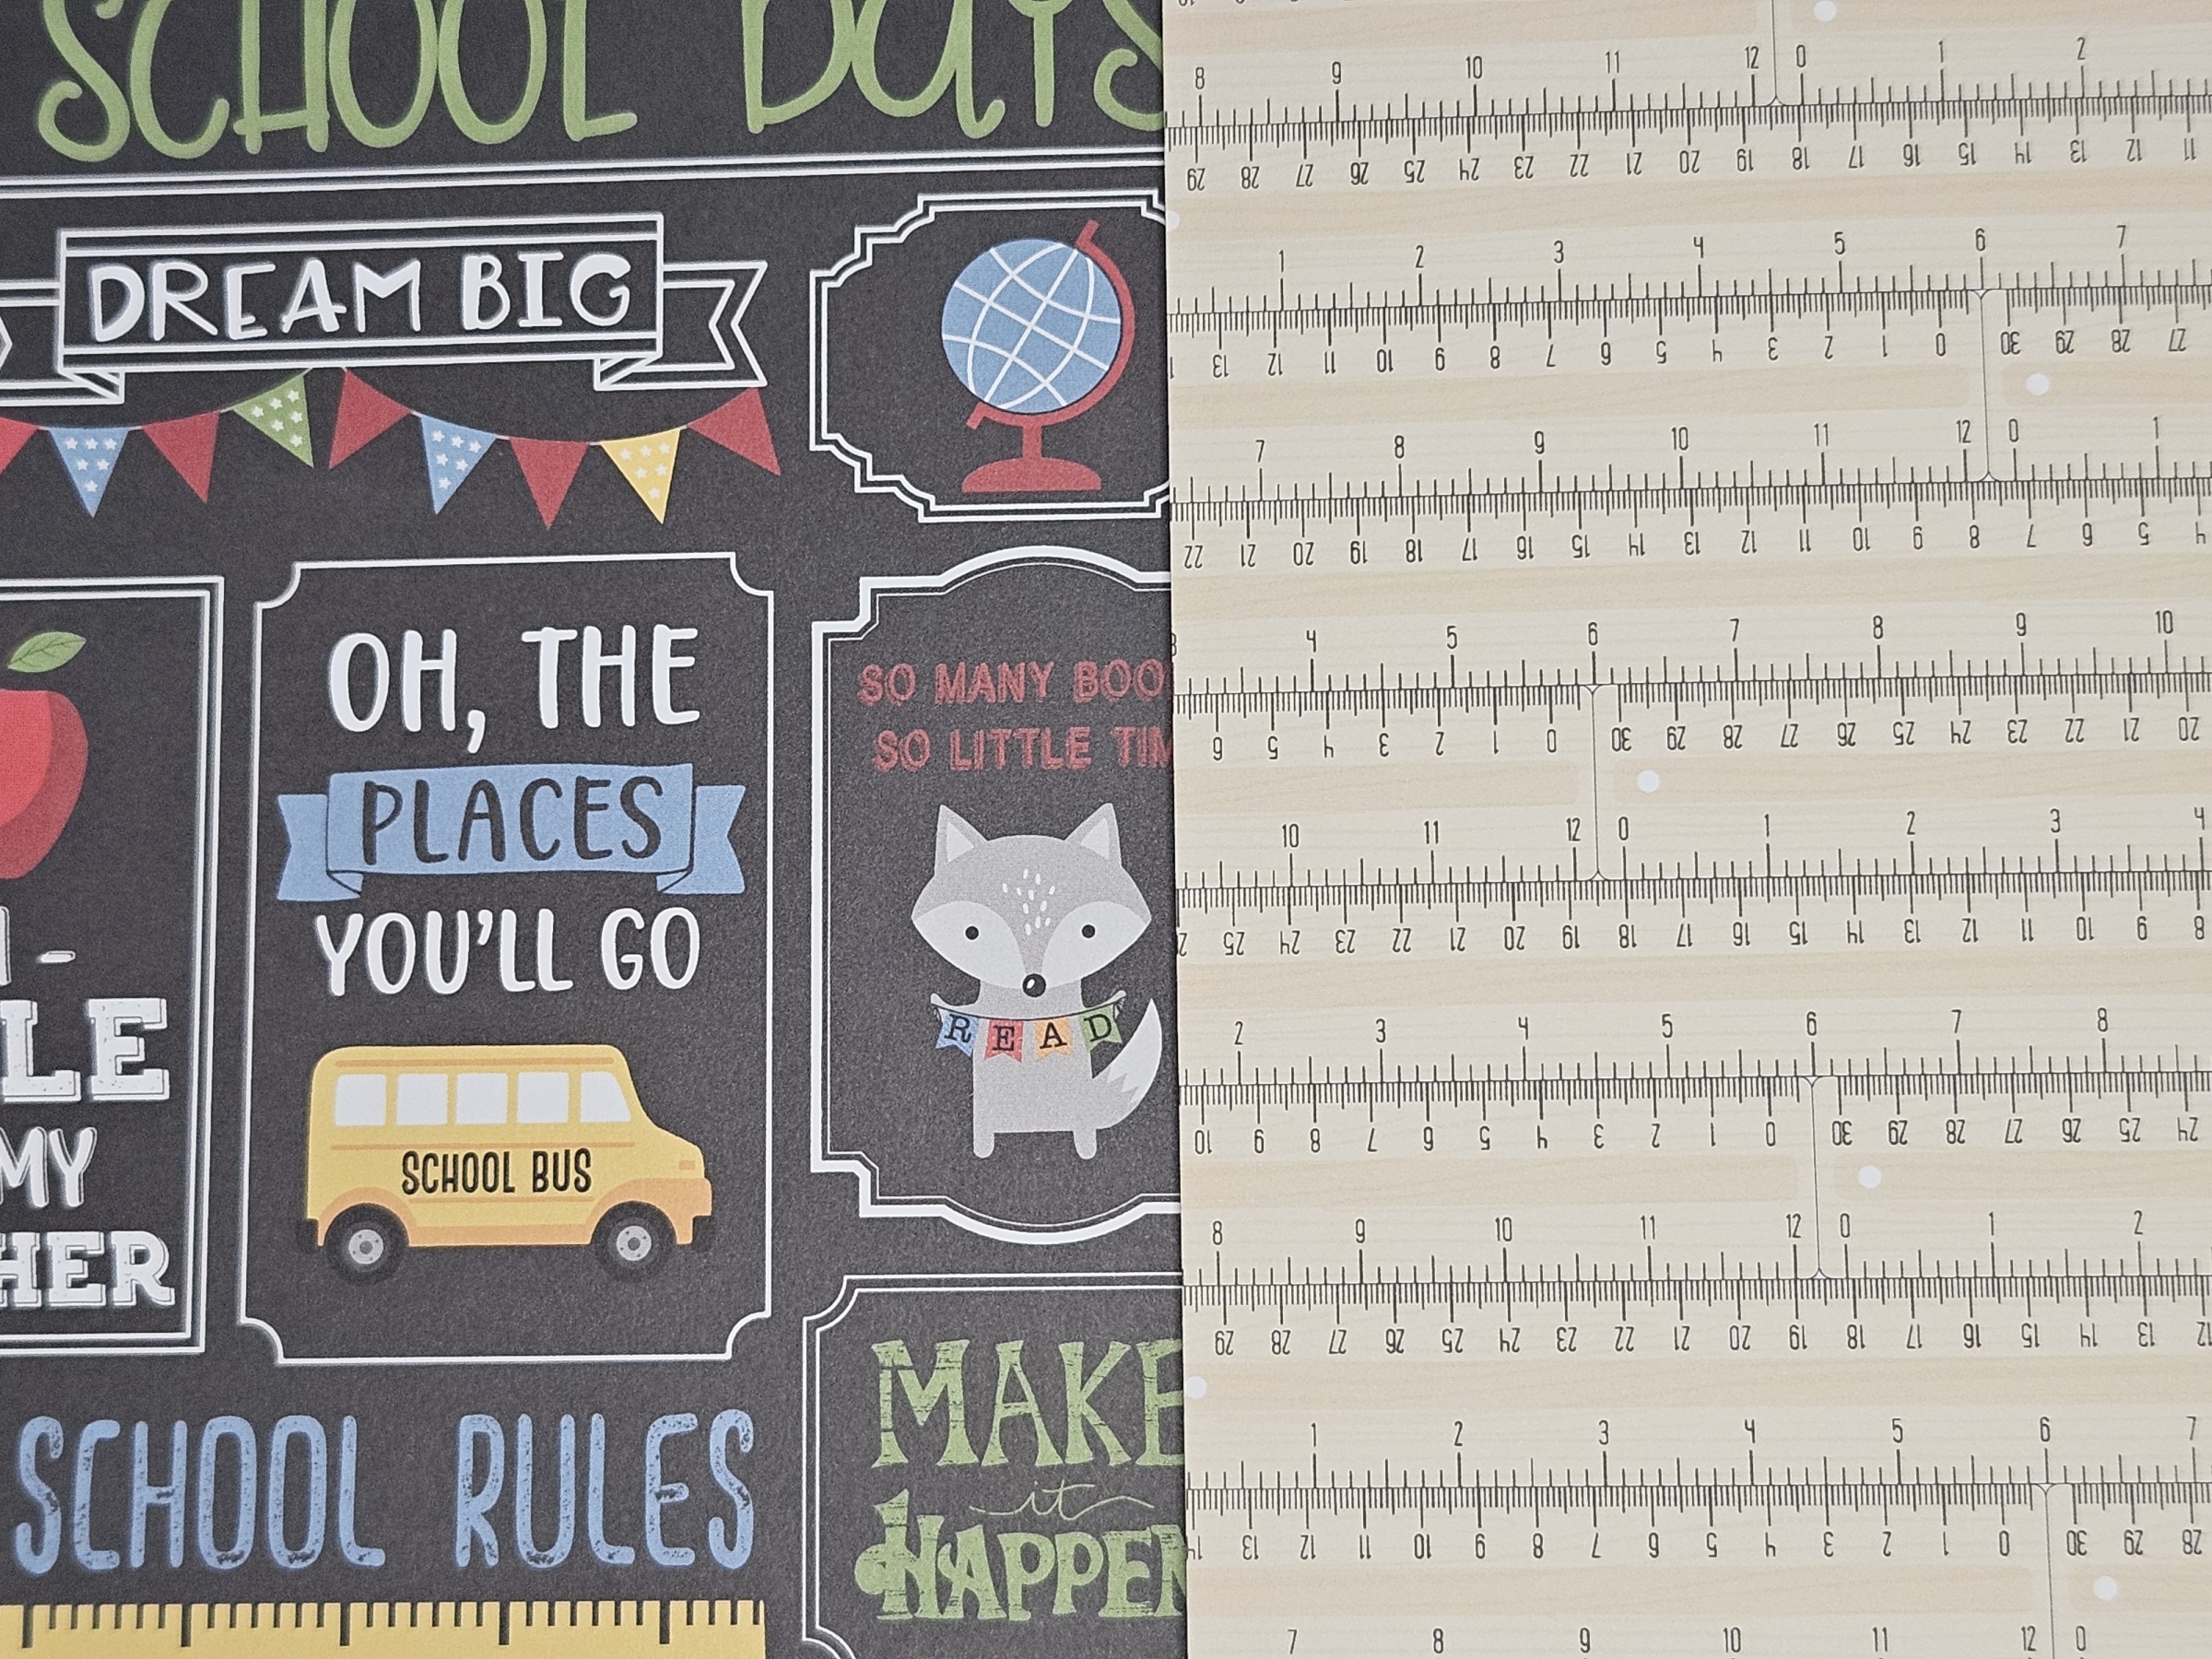 SCHOOL DAYS
DREAM BIG
OH, THE
PLACES
YOU'LL GO
SCHOOL BUS
SO MANY BOO
SO LITTLE TIM
READ
MY
HER
SCHOOL RULES
MAKE
it
HAPPEN
8 9 10 11 12 0 1 2
29 28 27 26 25 24 23 22 21 20 19 18 17 16 15 14 13 12 11
1 2 3 4 5 6 7
13 12 11 10 9 8 7 6 5 4 3 2 1 0 30 29 28 27
7 8 9 10 11 12 0 1
22 21 20 19 18 17 16 15 14 13 12 11 10 9 8 7 6 5 4
4 5 6 7 8 9 10
6 5 4 3 2 1 0 30 29 28 27 26 25 24 23 22 21 20
10 11 12 0 1 2 3 4
25 24 23 22 21 20 19 18 17 16 15 14 13 12 11 10 9 8
2 3 4 5 6 7 8
10 9 8 7 6 5 4 3 2 1 0 30 29 28 27 26 25 24
8 9 10 11 12 0 1 2
29 28 27 26 25 24 23 22 21 20 19 18 17 16 15 14 13 12
1 2 3 4 5 6 7
14 13 12 11 10 9 8 7 6 5 4 3 2 1 0 30 29 28
7 8 9 10 11 12 0